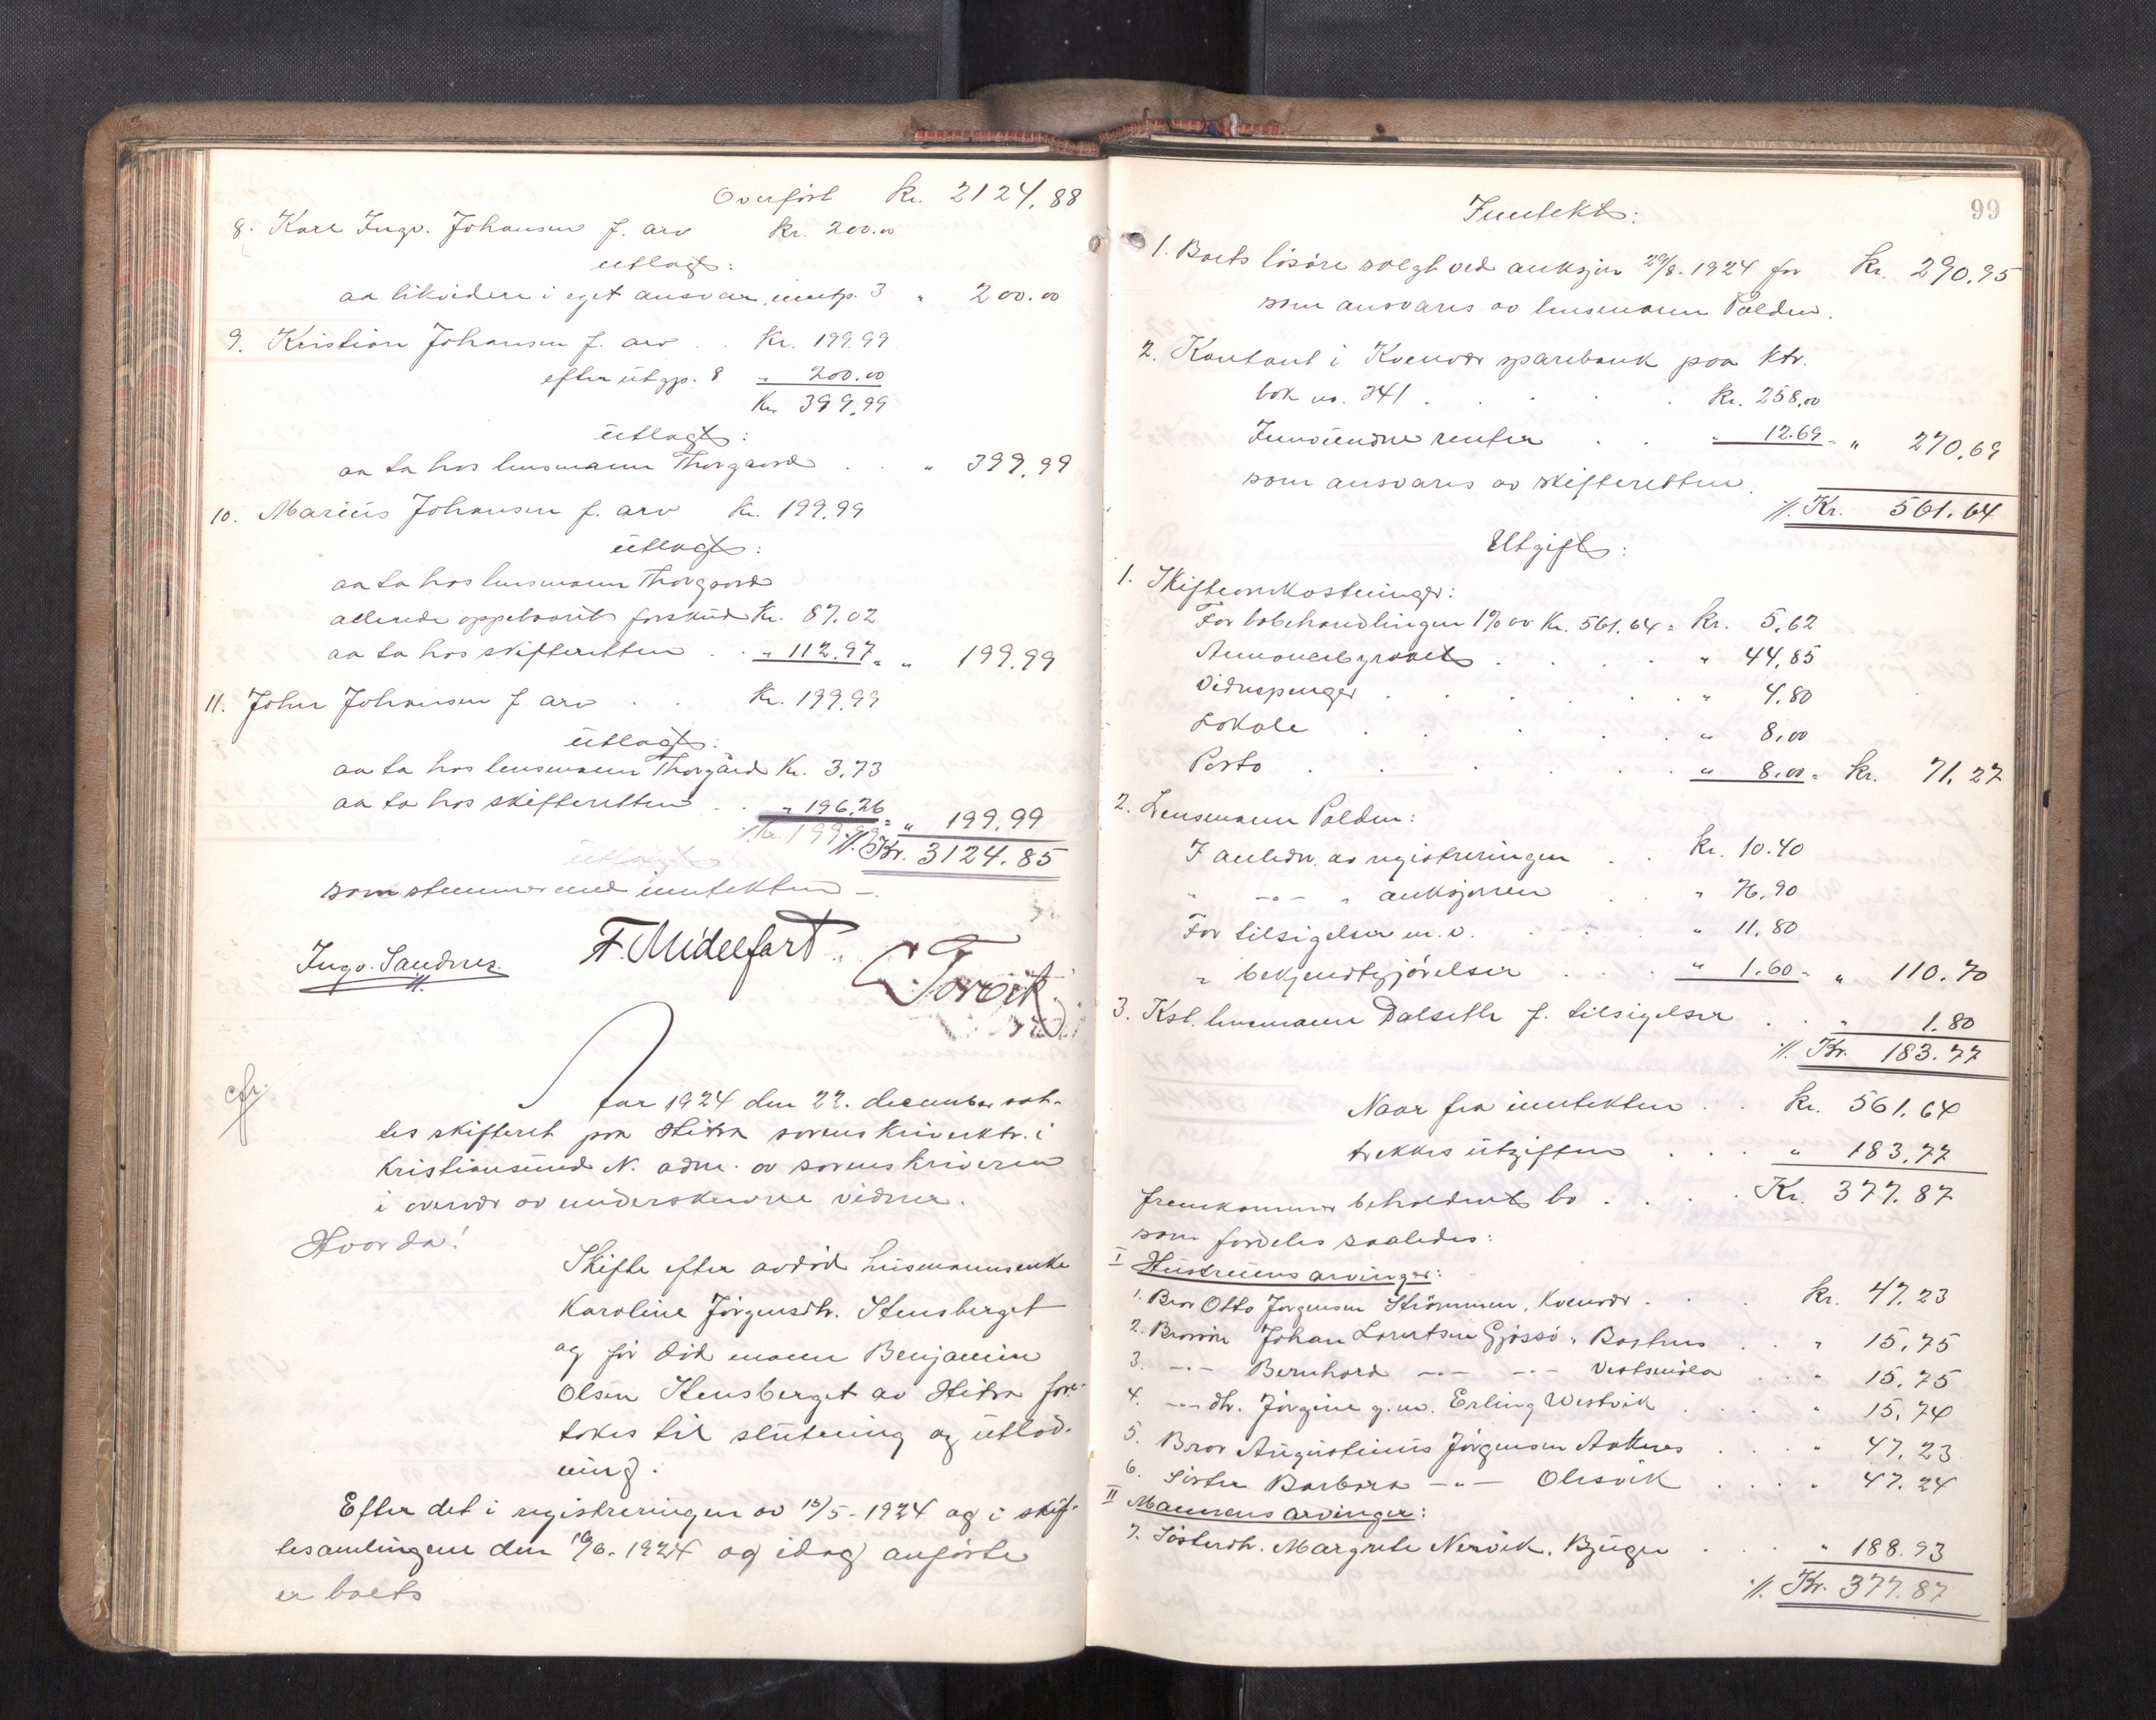 Overført Kr. 2124,88
8. Karl Ingv. Johansen f. arv Kr. 200.00
utlagt:
aa likvidere i eget ansvar, inntp. 3 " 200.00
9. Kristian Johansen f. arv . . Kr. 199.99
efter utgp. 8 " 200.00
Kr. 399,99
utlagt:
aa ta hos lensmann Thorgaard . . " 399,99
10. Marius Johansen f. arv Kr. 199,99
utlagt:
aa ta hos lensmann Thorgaard
allerede oppebaaret forskud Kr. 87,02
aa ta hos skifteretten . . " 112,97 = " 199,99
11. John Johansen f. arv . . Kr. 199,99
utlagt:
aa ta hos lensmann Thorgård Kr. 3,73
aa ta hos skifteretten . . " 196,26 = " 199,99
Kr. 199,99 ./. Kr. 3124,85
utlagt
som stemmer med inntekten —.
Ingv. Sandnes. F. Midelfart. Torvik
cfr.
Aar 1924 den 22. december sat-
tes skifteret paa Hitra sorenskriverktr. i
Kristiansund N. adm. av sorenskriveren
i overvær av underskrevne vidner.
Hvorda!
Skifte efter avdød husmannsenke
Karoline Jørgensdtr. Stensberget
og før død mann Benjamin
Olsen Stensberget av Hitra fore-
tokes til slutning og utlod-
ning.
Efter det i registreringen av 15/5-1924 og i skif-
tesamlingene den 16/6-1924 og idag anførte
er boets
99
Inntekt:
1. Boets løsøre solgt ved auksjon 29/8-1924 for Kr. 290,95
som ansvares av lensmann Palden.
2. Kontant i Kvenvær sparebank paa ktr.
bok no. 341 . . . . . Kr. 258,00
Innvundne renter . . " 12.69 = " 270,69
som ansvares av skifteretten.
./. Kr. 561,64
Utgift:
1. Skifteomkostninger:
For bobehandlingen 1% av Kr. 561,64 = Kr. 5,62
Annonsebyraaet . . . . " 44,85
Vidnepenger . . . . . " 4,80
Lokale . . . . . " 8,00
Porto . . . . . " 8,00 = Kr. 71,27
2. Lensmann Palden:
I anledn. av registreringen . . Kr. 10.40
" —"— " auksjonen . " 76,90
For tilsigelser m.v. . . . " 11,80
" bekjendtgjørelser . . . " 1.60 = " 110.70
3. Kst. lensmann Dalseth f. tilsigelser . . " 1.80
./. Kr. 183.77
Naar fra inntekten . . Kr. 561,64
trekkes utgiften . . . " 183,77
fremkommer beholdent bo . . . . Kr. 377.87
som fordeles saaledes:
I Hustruens arvinger:
1. Bror Otto Jørgensen Strømmen, Kvenvær . . . Kr. 47.23
2. Brorsøn Johan Lorentsen Gjøssø, Barhus . . " 15,75
3. —"— Bernhard —"— —"— Vestsmøla . . " 15,75
4. —"— dtr. Jørgine g.m. Erling Westvik . . . " 15,74
5. Bror Augustinus Jørgensen Aaknes . . . " 47.23
6. Søster Barbara —"— Olesvik . . . . " 47.24
II Mannens arvinger:
7. Søsterdtr. Margrete Nervik, Bjugn . . . " 188.93
./. Kr. 377.87